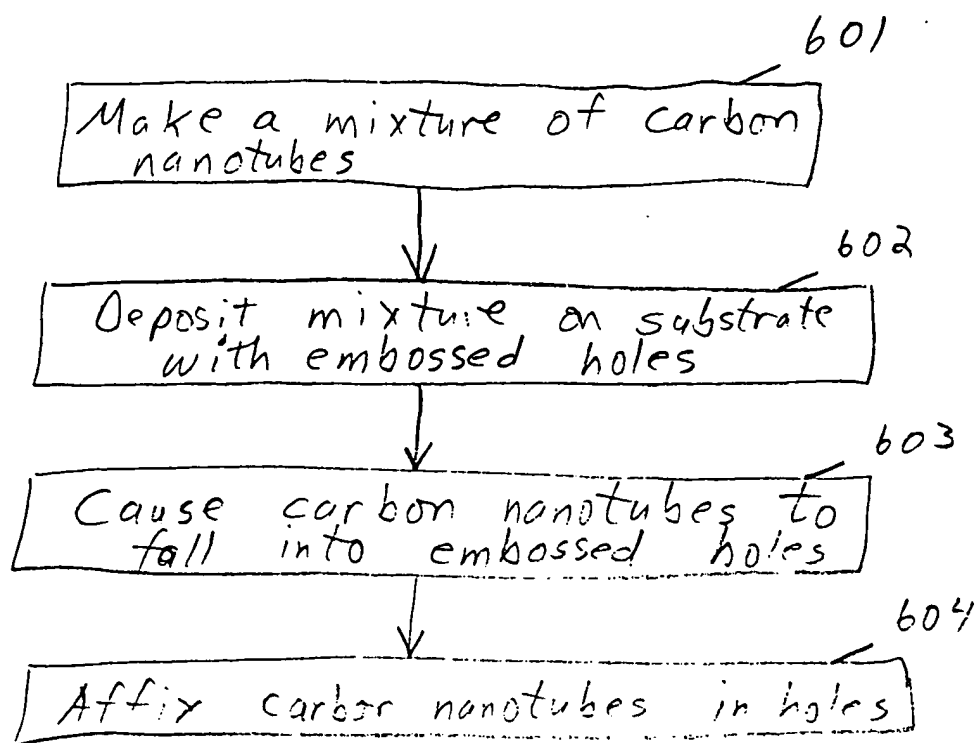 601
Make a mixture of carbon
nanotubes
602
Deposit mixture on substrate
with embossed holes
603
Cause carbon nanotubes to
fall into embossed holes
604
Affix carbon nanotubes in holes